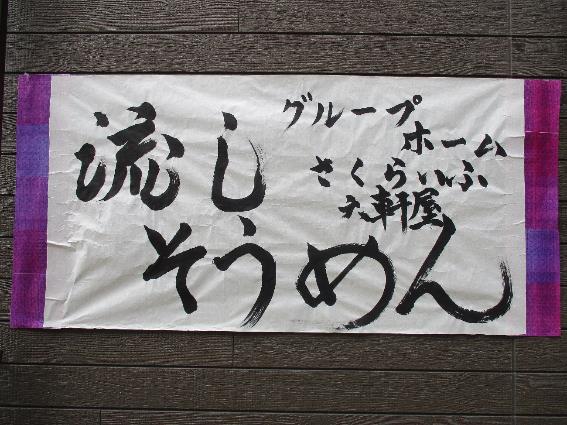 流し
そうめん
グループ
ホーム
さくらいふ
六軒屋